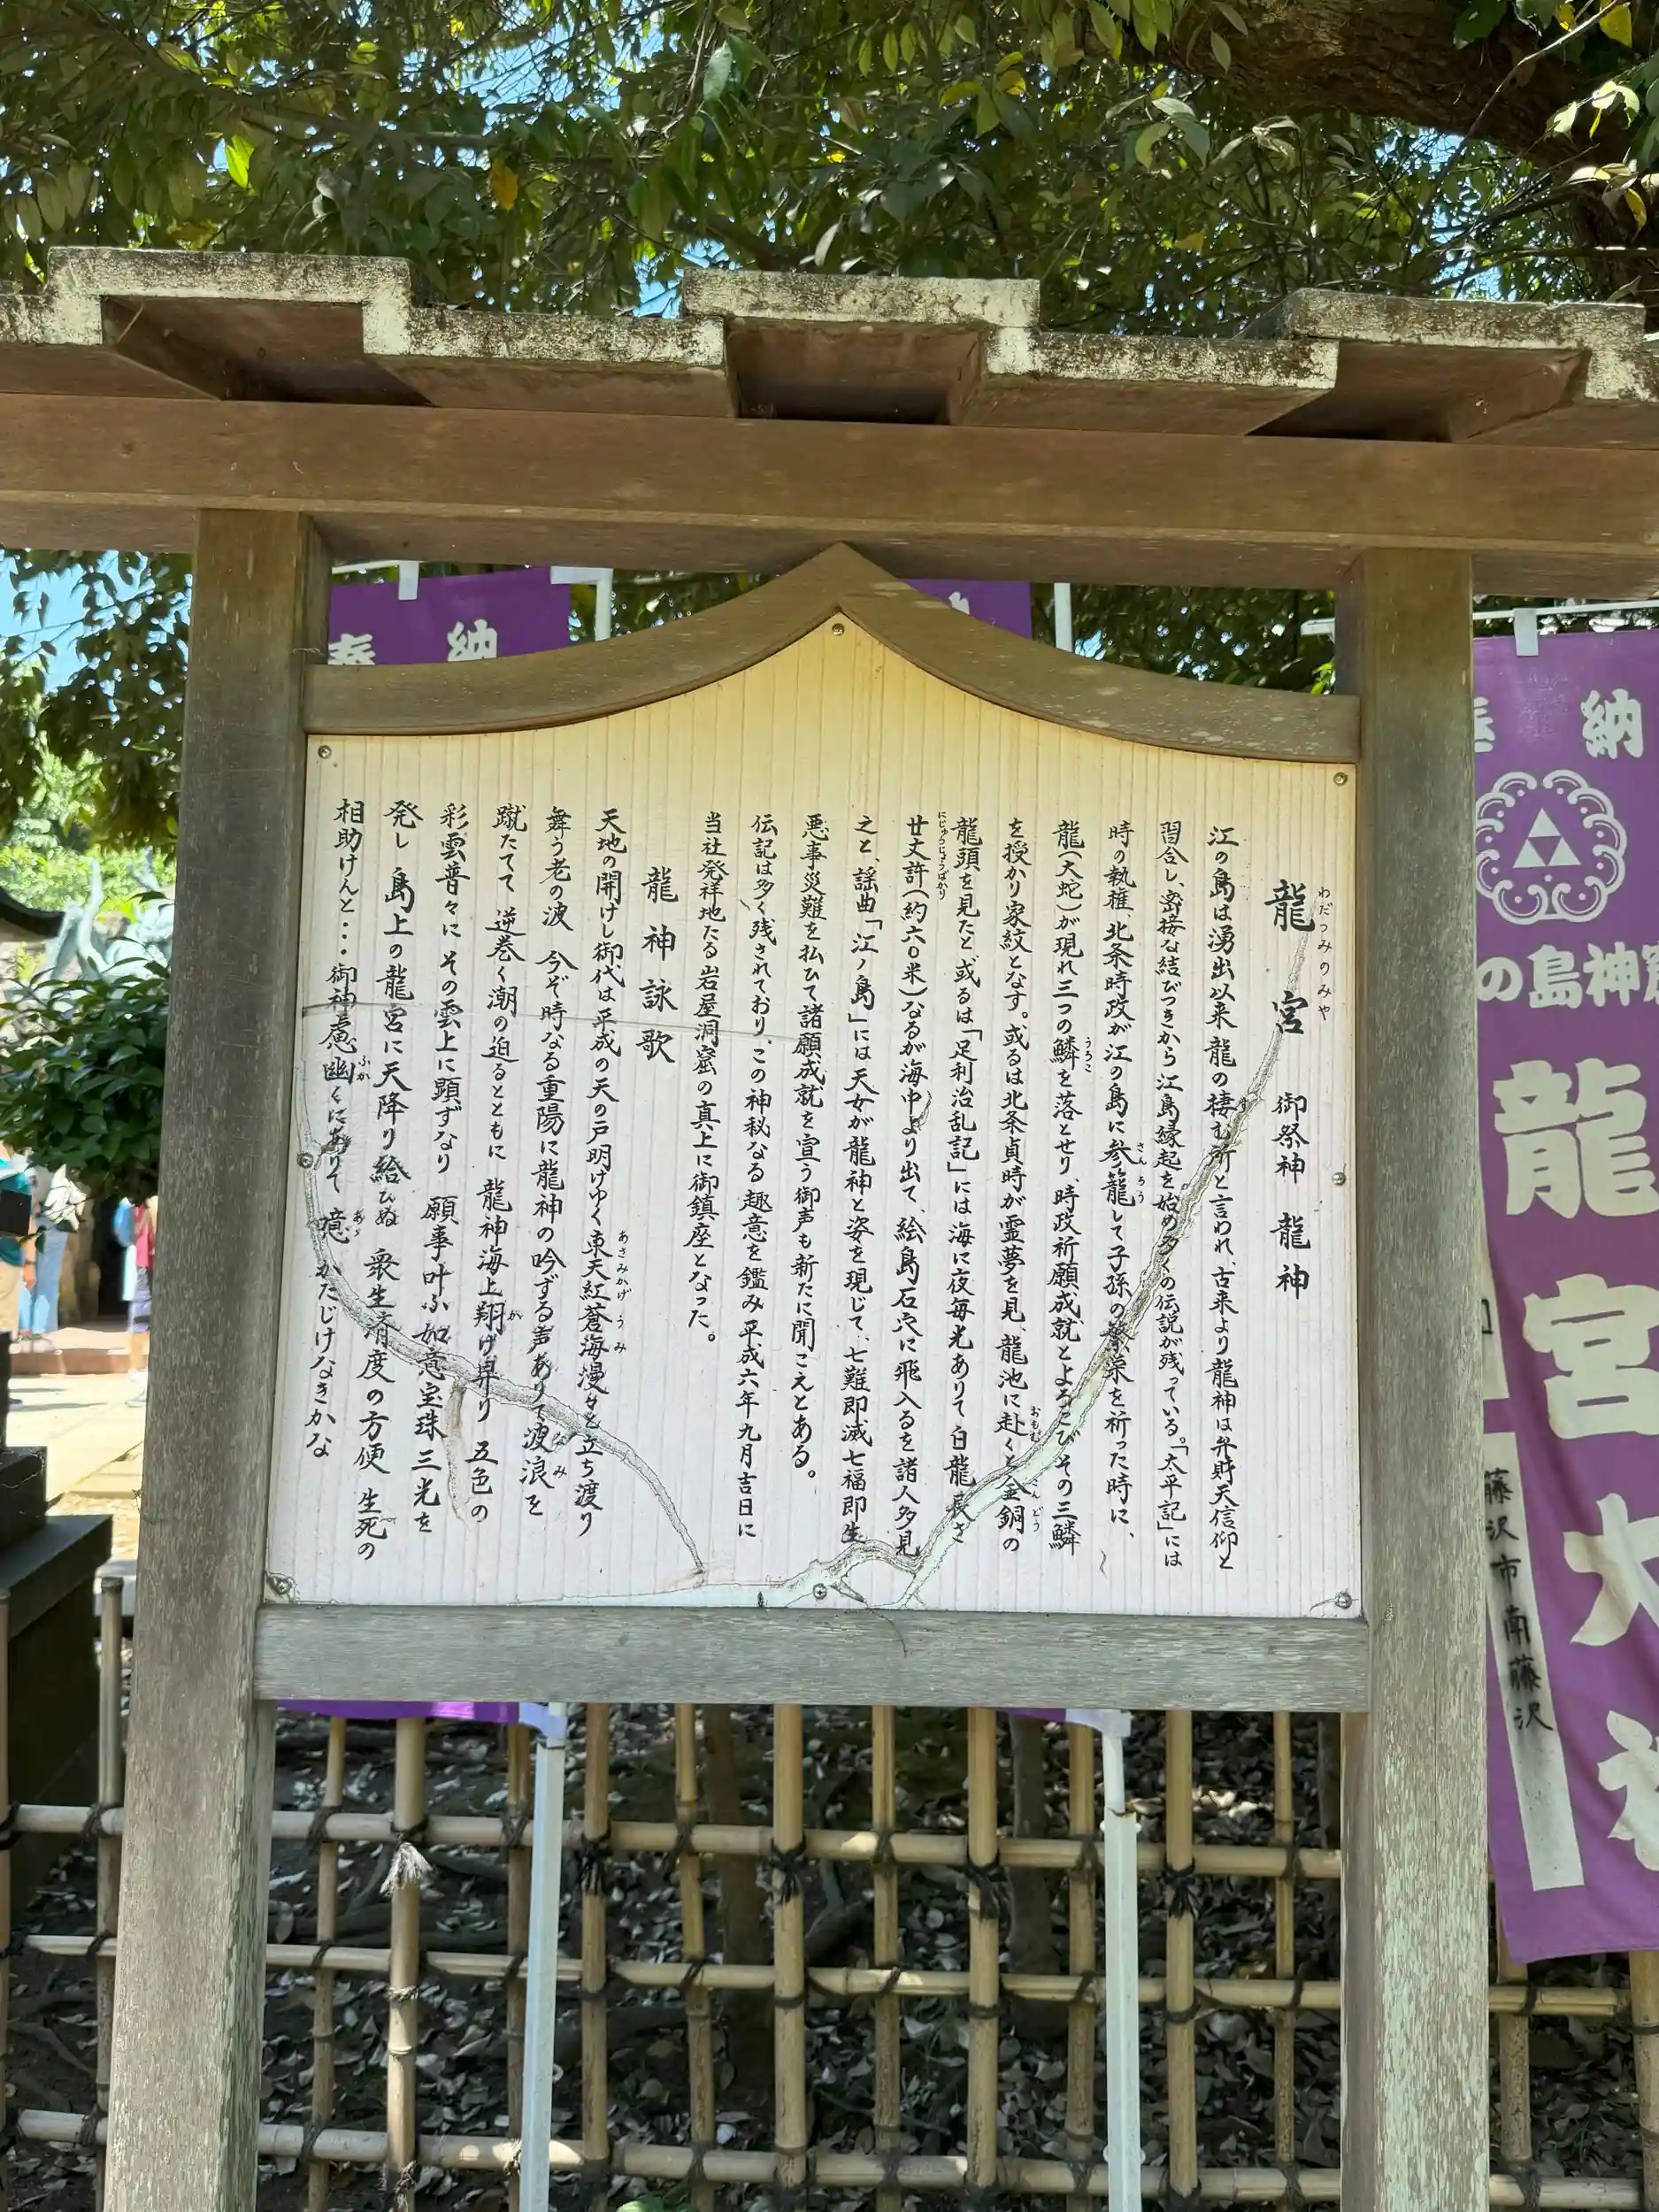 龍宮 御祭神 龍神
わだつみのみや
江の島は湧出以来龍の棲む所と言われ、古来より龍神は弁財天信仰と
習合し、密接な結びつきから江島縁起を始め多くの伝説が残っている。「太平記」には
時の執権、北条時政が江の島に参籠して子孫の繁栄を祈った時に、
さんろう
龍(大蛇)が現れ三つの鱗を落とせり、時政祈願成就とよろこびその三鱗
うろこ
を授かり家紋となす。或るは北条貞時が霊夢を見、龍池に赴くと金銅の
おもむ
龍頭を見たと或るは「足利治乱記」には海に夜毎光ありて白龍長さ
廿丈許(約六〇米)なるが海中より出て、絵島石穴に飛入るを諸人多見
にじゅうじょうばかり
之と、謡曲「江ノ島」には天女が龍神と姿を現じて、七難即滅七福即生
悪事災難を払ひて諸願成就を宣う御声も新たに聞こえとある。
伝記は多く残されており、この神秘なる趣意を鑑み平成六年九月吉日に
当社発祥地たる岩屋洞窟の真上に御鎮座となった。
龍神詠歌
天地の開けし御代は平成の天の戸明けゆく東天紅蒼海漫々と立ち渡り
あさみかげ うみ
舞う老の波 今ぞ時なる重陽に龍神の吟ずる声ありて波浪を
なみ
蹴たてて 逆巻く潮の迫るとともに 龍神海上翔け昇り 五色の
が
彩雲普々に その雲上に顕ずなり 願事叶ふ如意宝珠三光を
発し 島上の龍宮に天降り給ひぬ 衆生済度の方便 生死の
相助けんと・・・御神慮幽くにありて 噫 かたじけなきかな
ふか
あゝ
奉納
奉納
の島神窟
龍宮大
藤沢市南藤沢